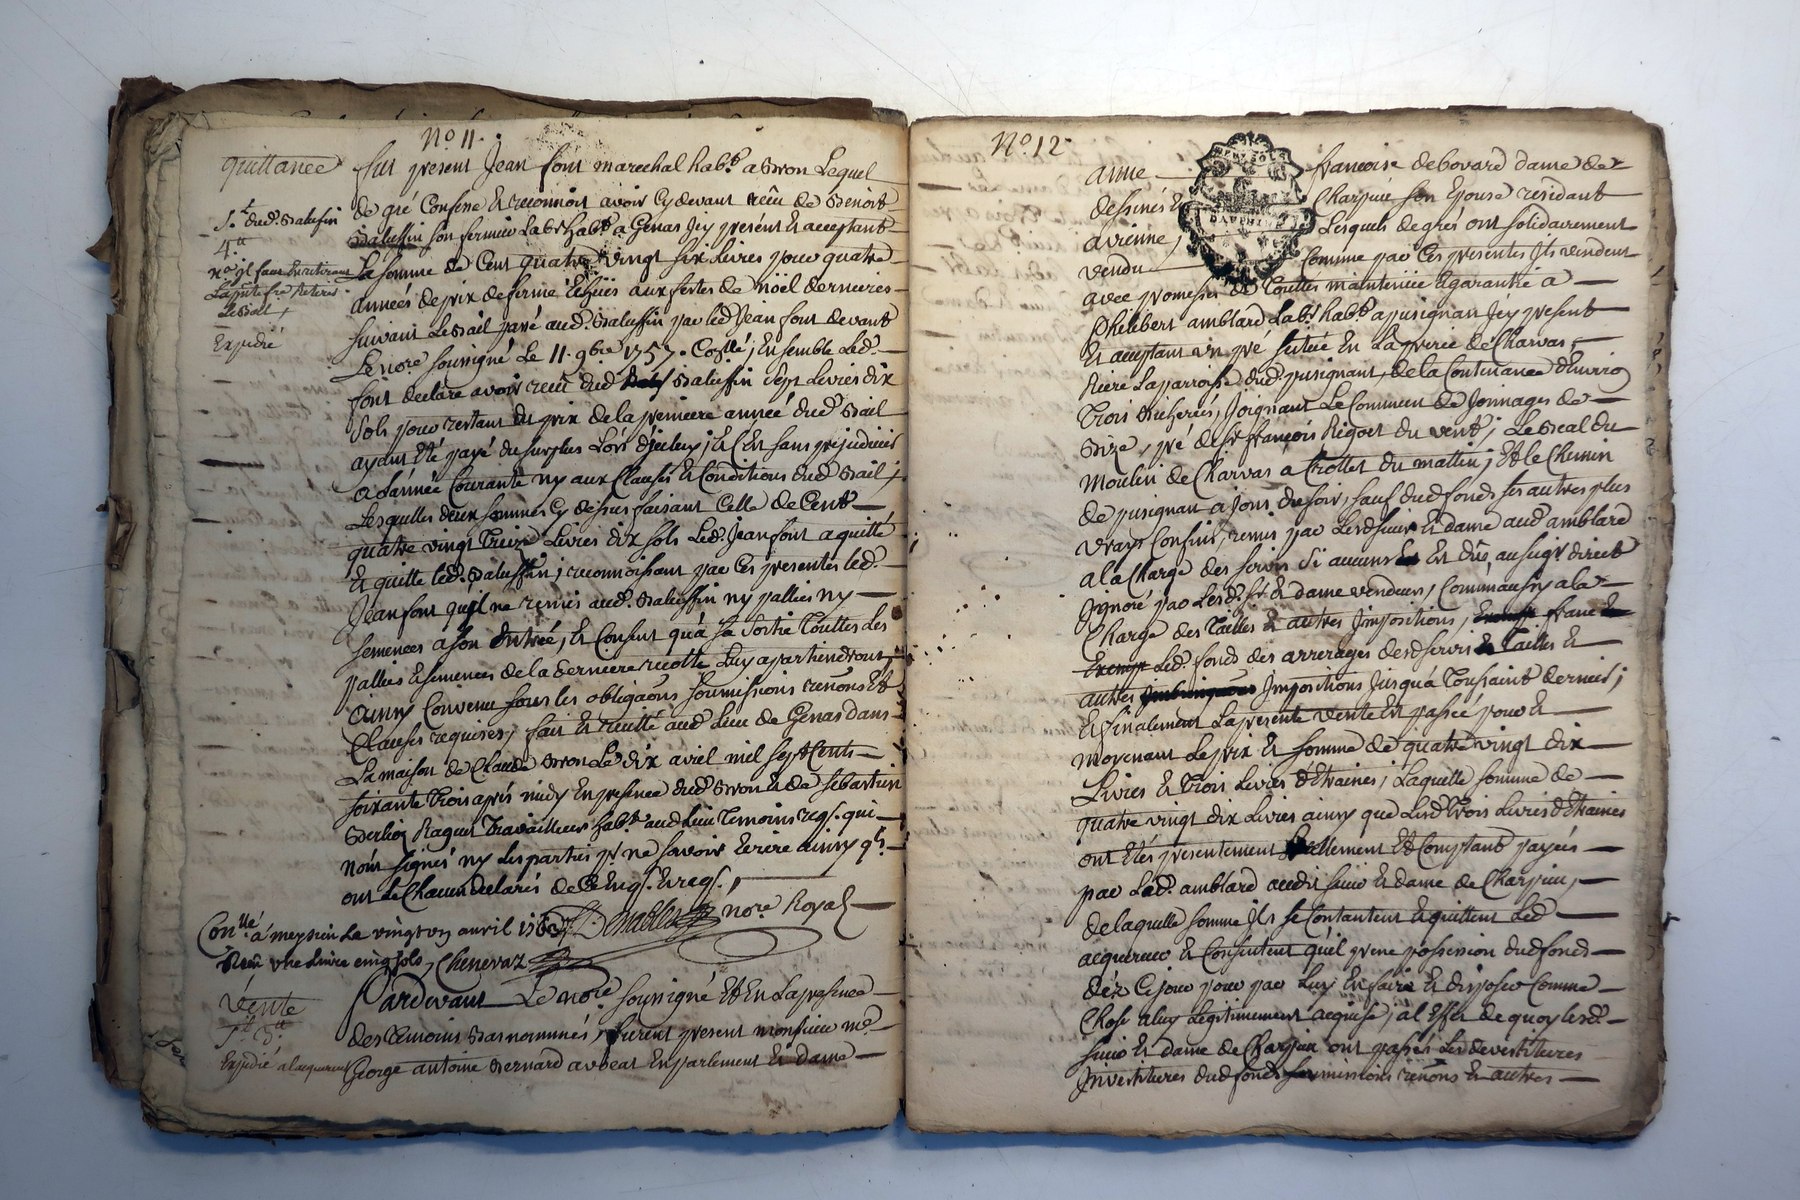 No. 11.
quittance
fut present Jean font marechal habt. a Bron Lequel
de gré Confesse Et reconnoit avoir Cy devant reçû de Benoit
Baluffin son fermier Labr. habt. a Genas Jcy présent Et acceptant
La somme de Cent quatre vingt six Livres pour quatre
années de prix de ferme Echües aux festes de nöël dernieres
suivant Le Bail passé aud. Baluffin par led. Jean font devant
Le nore. soussigné Le 11. 9bre 1757. Conllé; Ensemble Led.
font declare avoir reçu dud. Baluffin sept Livres dix
sols pour restant du prix de la premiere année dud. Bail
ayant Eté payé du surplus Lors d'jceluy; Et C'est sans prejudice
a L'année Courante ny aux Clauses Et Conditions dud. Bail;
Lesquelles deux sommes Cy dessus faisant Celle de Cent
quatre vingt Treize Livres dix sols Led. Jean font a quitté
Et quitte led. Baluffin; reconnoissant par Ces presentes led.
Jean font qu'il ne remis aud. Baluffin ny pallies ny
semences a son Entrée, Et Consent qu'a sa sortie Touttes Les
pallies Et semences de la derniere recolte Luy apartiendront,
ainsy Convenu sous les obligaõns soumissions renõns Et
Clauses requises, fait Et recitté aud. Lieu de Genas dans
La maison de Claude Bron Le dix avril mil sept Cents
soixante Trois aprés midy En presence dud. Bron Et de sebastien
Berlioz Raquet Travailleurs habts. aud. Lieu Temoins reqs. qui
n'ont signés ny Les parties pr. ne savoir Ecrire ainsy qls.
ont Et Chacun declarés de Ce Enqs. Et reqs.
nore. Royal
Sr. dud. Baluffin
4.tt
na. jl faut En retirer
Le Bail,
Expedié
Conllé a meysieu Le vingt un auril 1763
Receu une Liure cinq sols, Chenevaz
Vente
3.tt
Expedié a l'acquereur
Pardevant Le nore. soussigné Et En La presence
des Temoins Bas nommés, furent present monsieur me.
George antoine Bernard avocat En parlement Et dame
No. 12.
anne
francoise de bovard dame de
dessinés Et
Charpieu son Epouse residant
a vienne,
Lesquels de gres ont solidairement
vendu
Comme par Ces presentes Jls vendent
DAUPHINÉ
avec promesses de Touttes maintenüe Et garantie a
Philibert amblard Labr. habt. a pusignan Jcy present
Et acceptant un pré situé En La prerie de Charvas,
Riere La parroisse dud. pusignan, de la Contenance d'Environ
Trois Bicherées, Joignant Le Commun de Jonnages de
Bize, pré de sr. françois Rigoet du vent; Le Beal du
moulin de Charvas a Crottet du mattin; Et le Chemin
de pusignan a Jons du soir, sauf dud. fonds ses autres plus
vrays Confins, remis par Lesd. sieur Et dame aud. amblard
a la Charge des servis si aucuns Est dûs, au seigr. direct
jgnoré par Lesd. sr. Et dame vendeurs, Comm'aussy a la
Charge des Tailles Et autres Jmpositions, franc
Led. fonds des arrerages desd. servis Tailles Et
autres Jmpositions Jusqu'a Toussaint dernier;
Et finalement La presente vente Est passée pour Et
moyenant Le prix Et somme de quatre vingt dix
Livres Et Trois Livres d'Etraines; Laquelle somme de
quatre vingt dix Livres ainsy que Lesd. Trois Livres d'Etraines
ont Etés presentement reellement Et Comptant payés
par Led. amblard audit sieur Et dame de Charpieu,
de laquelle somme Jls se Contantent Et quittent Led.
acquereur Et Consentent qu'il prene possession dud. fonds
déz Cejour pour par Luy En faire Et disposer Comme
Chose a luy Legitimement acquise; al Effet de quoy Lesd.
sieur Et dame de Charpieu ont passés Les devestitures
Jnvestitures dud. fonds soumissions renons Et autres